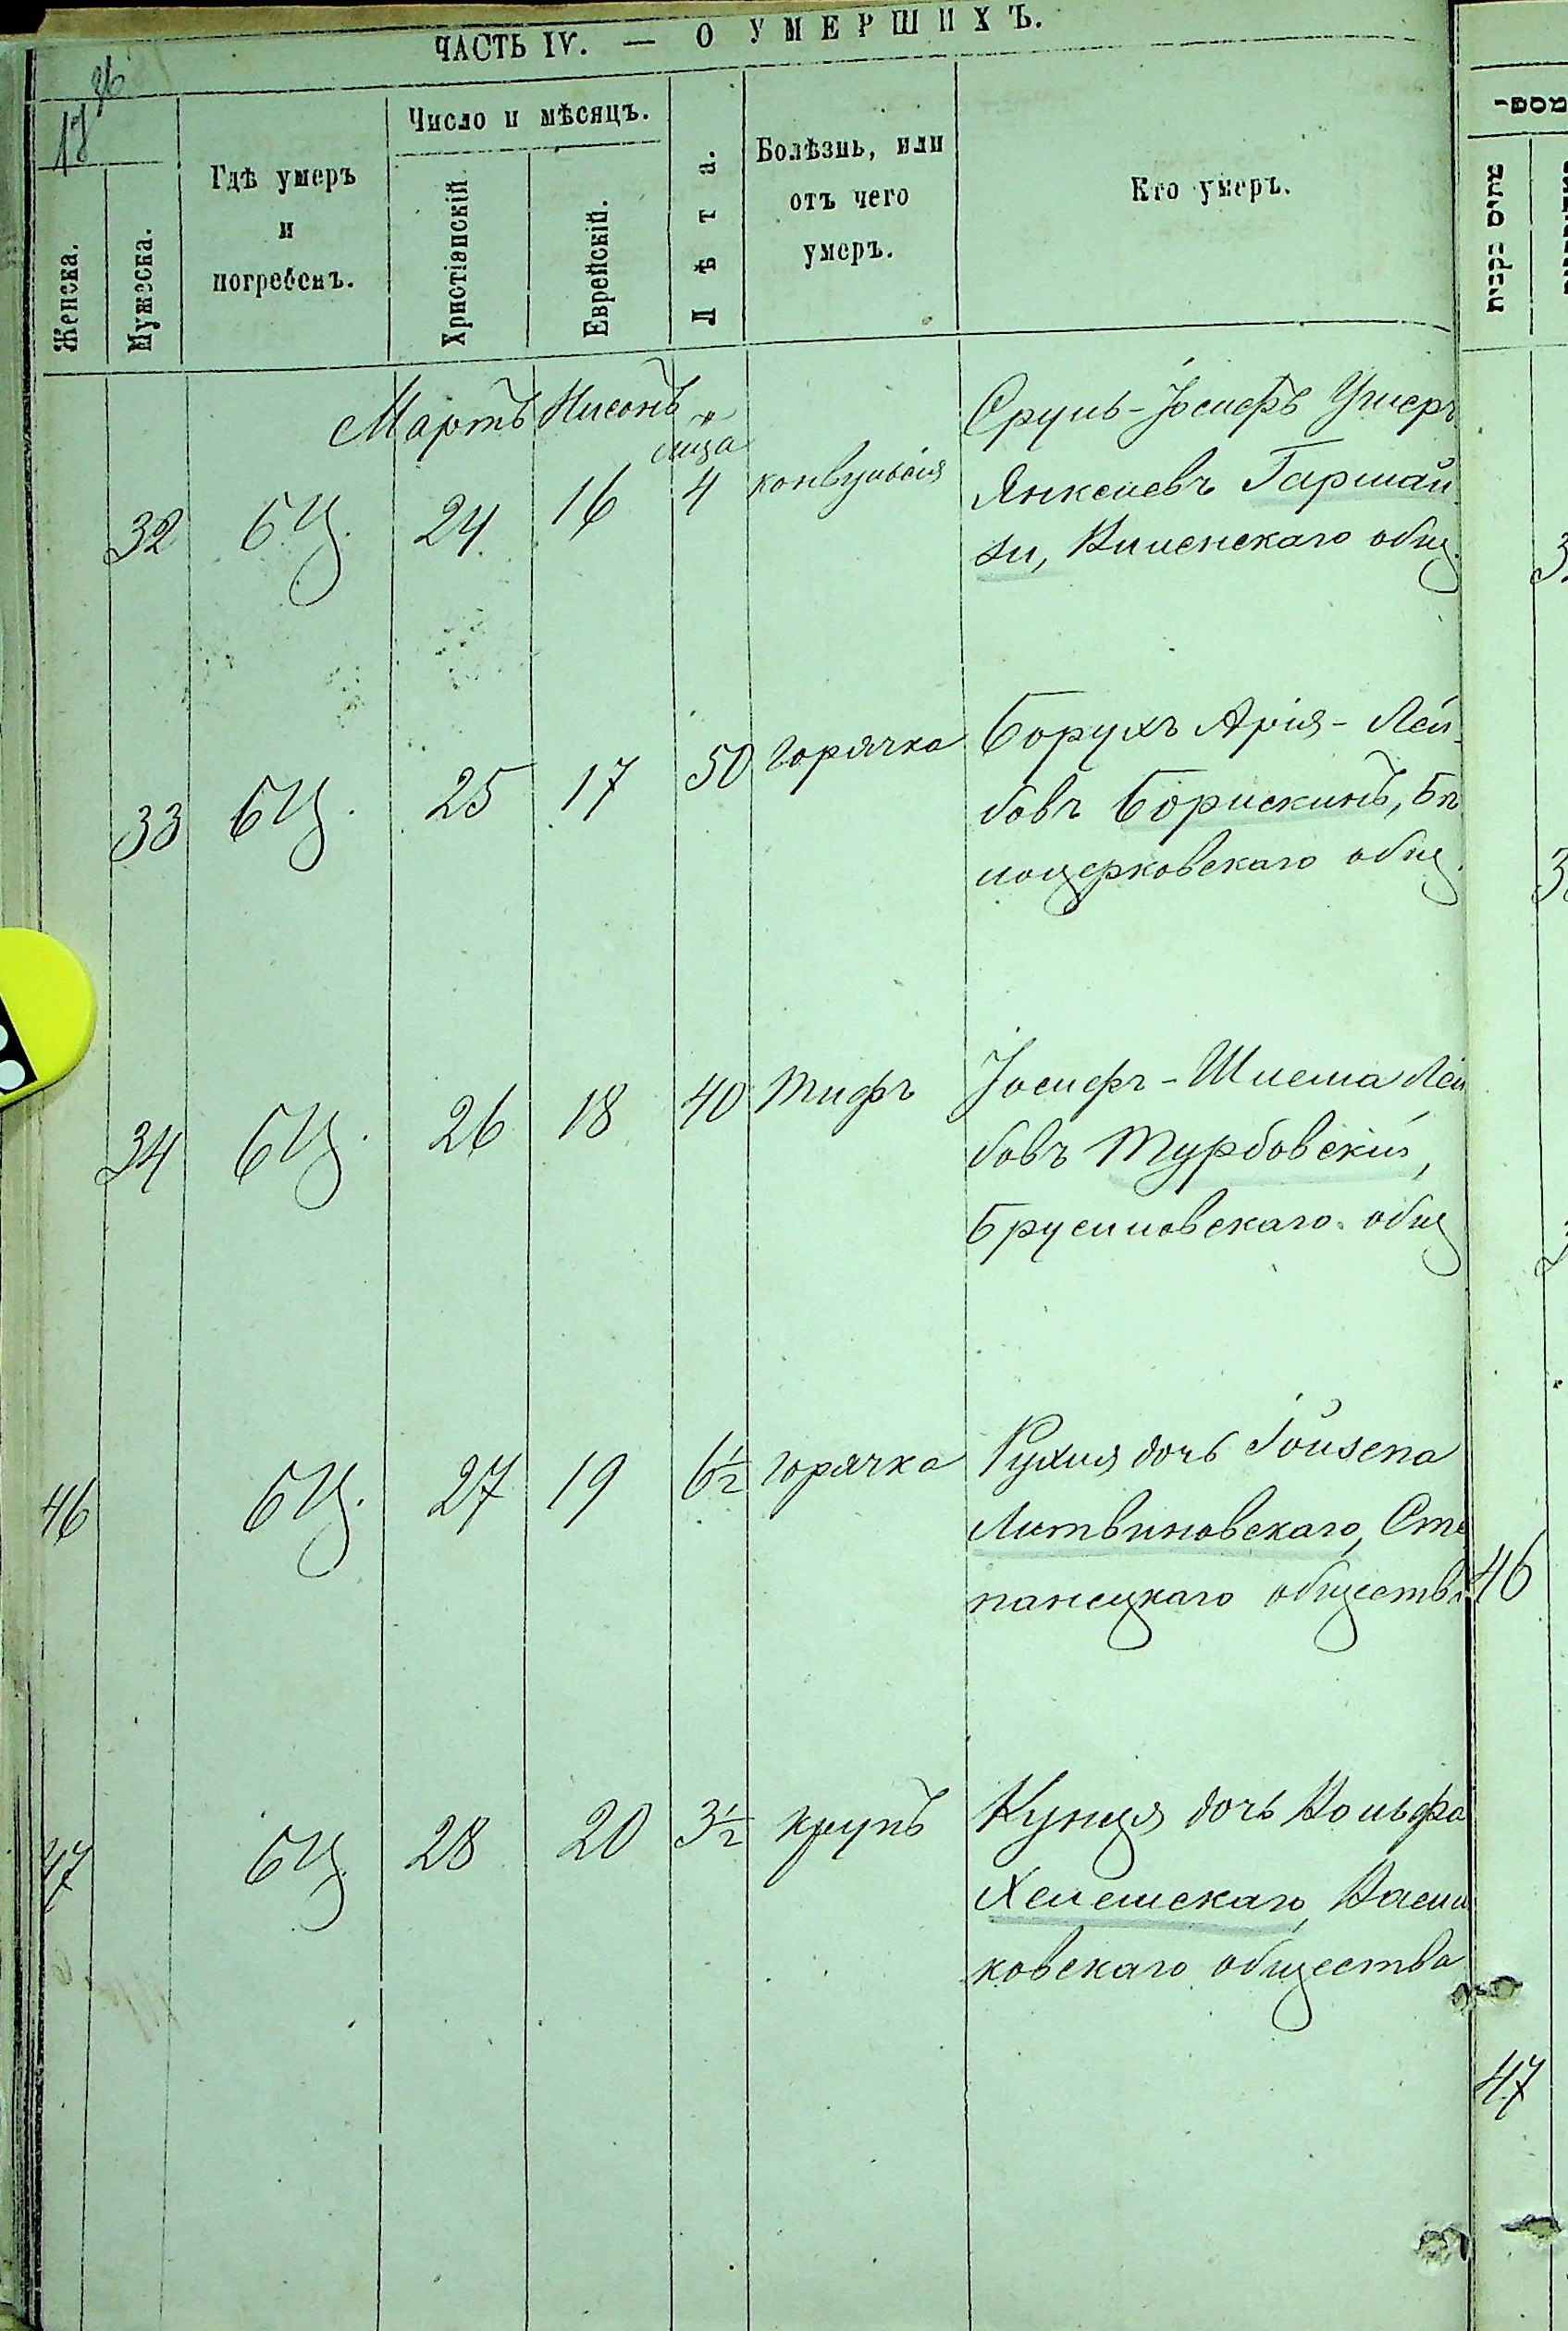 ЧАСТЬ IV. — О УМЕРШИХЪ.
Женска.
Мужеска.
Гдѣ умеръ
и
погребенъ.
Число и мѣсяцъ.
Христіанскій.
Еврейскій.
Лѣта.
Болѣзнь, или
отъ чего
умеръ.
Кто умеръ.
Мартъ Нисонъ
32 БЦ. 24 16 4 конвульсія
Сруль-Іосифъ Умеръ
Янкелевъ
33 БЦ. 25 17 50 горячка
Борухъ Арія-Лей-
бовъ Борискинъ, Бѣ
лоцерковскаго общ.
34 БЦ. 26 18 40 тифъ
Іосифъ-Шлема Лей
бовъ Турбовскій,
Брусиловскаго общ
46 БЦ. 27 19 6½ горячка
Рухля дочь Іойзепа
Литвиновскаго, Сте
панецкаго общества
47 БЦ. 28 20 3½ крупъ
Кунця дочь Вольфа
Хелемскаго, Василь
ковскаго общества
46
47